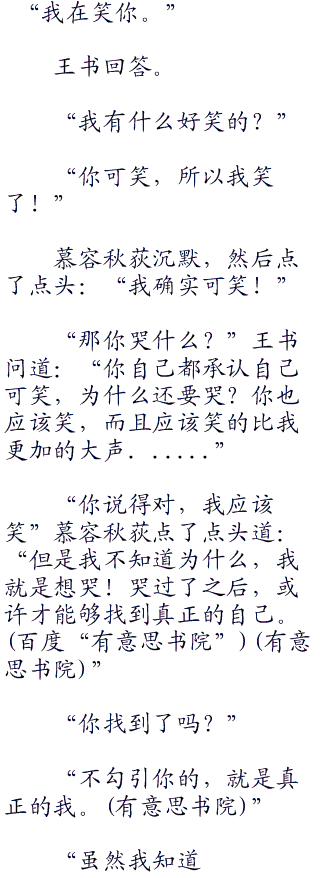 “我在笑你。”
王书回答。
“我有什么好笑的？”
“你可笑，所以我笑
了！”
慕容秋荻沉默，然后点
了点头：“我确实可笑！”
“那你哭什么？”王书
问道：“你自己都承认自己
可笑，为什么还要哭？你也
应该笑，而且应该笑的比我
更加的大声．.....”
“你说得对，我应该
笑”慕容秋荻点了点头道：
“但是我不知道为什么，我
就是想哭！哭过了之后，或
许才能够找到真正的自己。
(百度“有意思书院”)(有意
思书院)”
“你找到了吗？”
“不勾引你的，就是真
正的我。(有意思书院)”
“虽然我知道